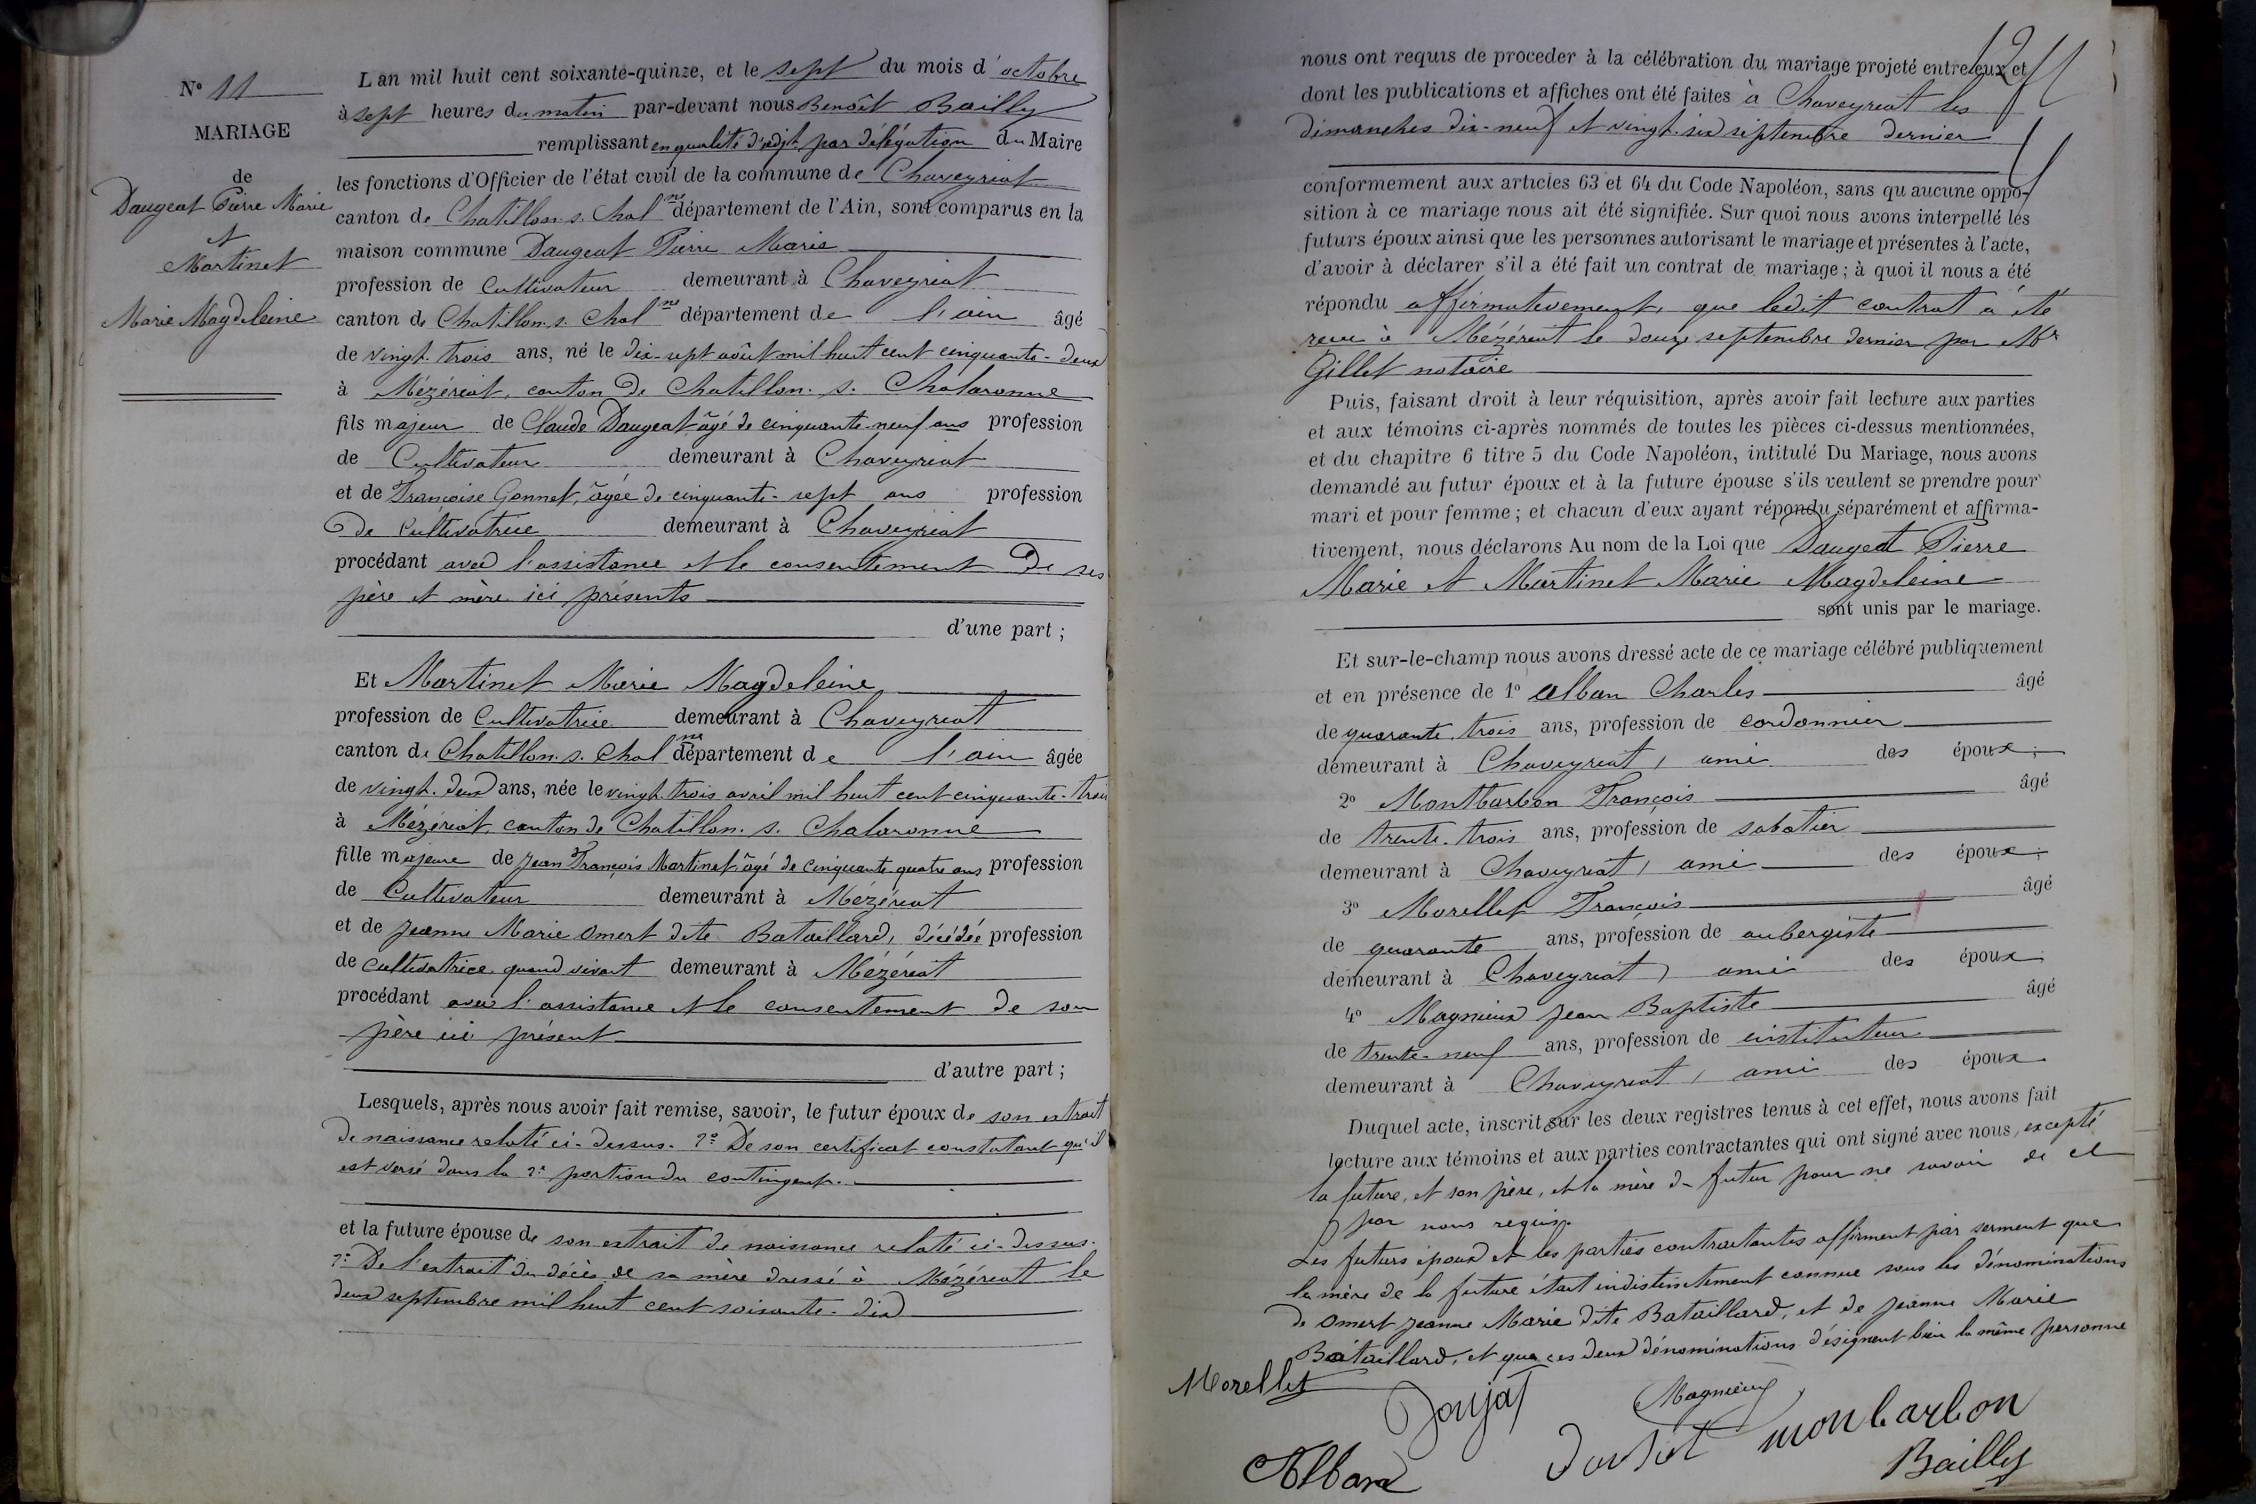 N° 11
MARIAGE
de
Daugeat Pierre Marie
et
Martinet
Marie Magdeleine
L'an mil huit cent soixante-quinze, et le sept du mois d'octobre
à sept heures du matin par-devant nous Benoît Bailly
remplissant en qualité d'adjt par délégation du Maire
les fonctions d'Officier de l'état civil de la commune de Chaveyriat
canton de Chatillon s. Chal ne département de l'Ain, sont comparus en la
maison commune Daugeat Pierre Marie
profession de Cultivateur demeurant à Chaveyriat
canton de Chatillon s. Chal ne département de l'ain âgé
de vingt-trois ans, né le dix-sept août mil huit cent cinquante-deux
à Mézériat, canton de Chatillon s. Chalaronne
fils majeur de Claude Daugeat âgé de cinquante-neuf ans profession
de Cultivateur demeurant à Chaveyriat
et de Françoise Gonnet, âgée de cinquante-sept ans profession
de cultivatrice demeurant à Chaveyriat
procédant avec l'assistance et le consentement de ses
père et mère ici présents
d'une part ;
Et Martinet Marie Magdeleine
profession de Cultivatrice demeurant à Chaveyriat
canton de Chatillon s. Chal ne département de l'ain âgée
de vingt-deux ans, née le vingt-trois avril mil huit cent cinquante-trois
à Mézériat canton de Chatillon s. Chalaronne
fille majeure de Jean François Martinet âgé de cinquante quatre ans profession
de Cultivateur demeurant à Mézériat
et de Jeanne Marie Omert dite Bataillard, décédée profession
de cultivatrice quand vivait demeurant à Mézériat
procédant avec l'assistance et le consentement de son
père ici présent
d'autre part ;
Lesquels, après nous avoir fait remise, savoir, le futur époux de son extrait
de naissance relaté ci-dessus. 2° De son certificat constatant qu'il
est versé dans la 2e portion du contingent.
et la future épouse de son extrait de naissance relaté ci-dessus.
2° De l'extrait du décès de sa mère dressé à Mézériat le
deux septembre mil huit cent soixante-dix
nous ont requis de proceder à la célébration du mariage projeté entre eux et
dont les publications et affiches ont été faites à Chaveyriat les
dimanches dix-neuf et vingt-six septembre dernier
conformement aux articles 63 et 64 du Code Napoléon, sans qu'aucune oppo-
sition à ce mariage nous ait été signifiée. Sur quoi nous avons interpellé les
futurs époux ainsi que les personnes autorisant le mariage et présentes à l'acte,
d'avoir à déclarer s'il a été fait un contrat de mariage ; à quoi il nous a été
répondu affirmativement, que ledit contrat a été
recu à Mézériat le douze septembre dernier par Mr
Gillet notaire
Puis, faisant droit à leur réquisition, après avoir fait lecture aux parties
et aux témoins ci-après nommés de toutes les pièces ci-dessus mentionnées,
et du chapitre 6 titre 5 du Code Napoléon, intitulé Du Mariage, nous avons
demandé au futur époux et à la future épouse s'ils veulent se prendre pour
mari et pour femme ; et chacun d'eux ayant répondu séparément et affirma-
tivement, nous déclarons Au nom de la Loi que Daugeat Pierre
Marie et Martinet Marie Magdeleine
sont unis par le mariage.
Et sur-le-champ nous avons dressé acte de ce mariage célébré publiquement
et en présence de 1° Alban Charles âgé
de quarante-trois ans, profession de cordonnier
demeurant à Chaveyriat, ami des époux ;
2° Montbarbon François âgé
de trente-trois ans, profession de sabotier
demeurant à Chaveyriat, ami des époux ;
3° Morellet François âgé
de quarante ans, profession de aubergiste
demeurant à Chaveyriat, ami des époux
4° Magnieux Jean Baptiste âgé
de trente-neuf ans, profession de instituteur
demeurant à Chaveyriat, ami des époux
Duquel acte, inscrit sur les deux registres tenus à cet effet, nous avons fait
lecture aux témoins et aux parties contractantes qui ont signé avec nous, excepté
la future, et son père, et la mère du futur pour ne savoir de ce
par nous requis.
Les futurs époux et les parties contractantes affirment par serment que
la mère de la future était indistinctement connue sous les dénominations
de Omert Jeanne Marie dite Bataillard, et de Jeanne Marie
Bataillard, et que ces deux dénominations désignent bien la même personne
Morellet
Doujat
Magnieux
Alban
monbarbon
Bailly